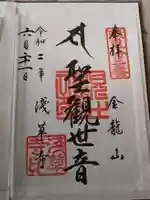 奉拝
金龍山
聖観世音
浅草寺
令和二年
六月二十一日